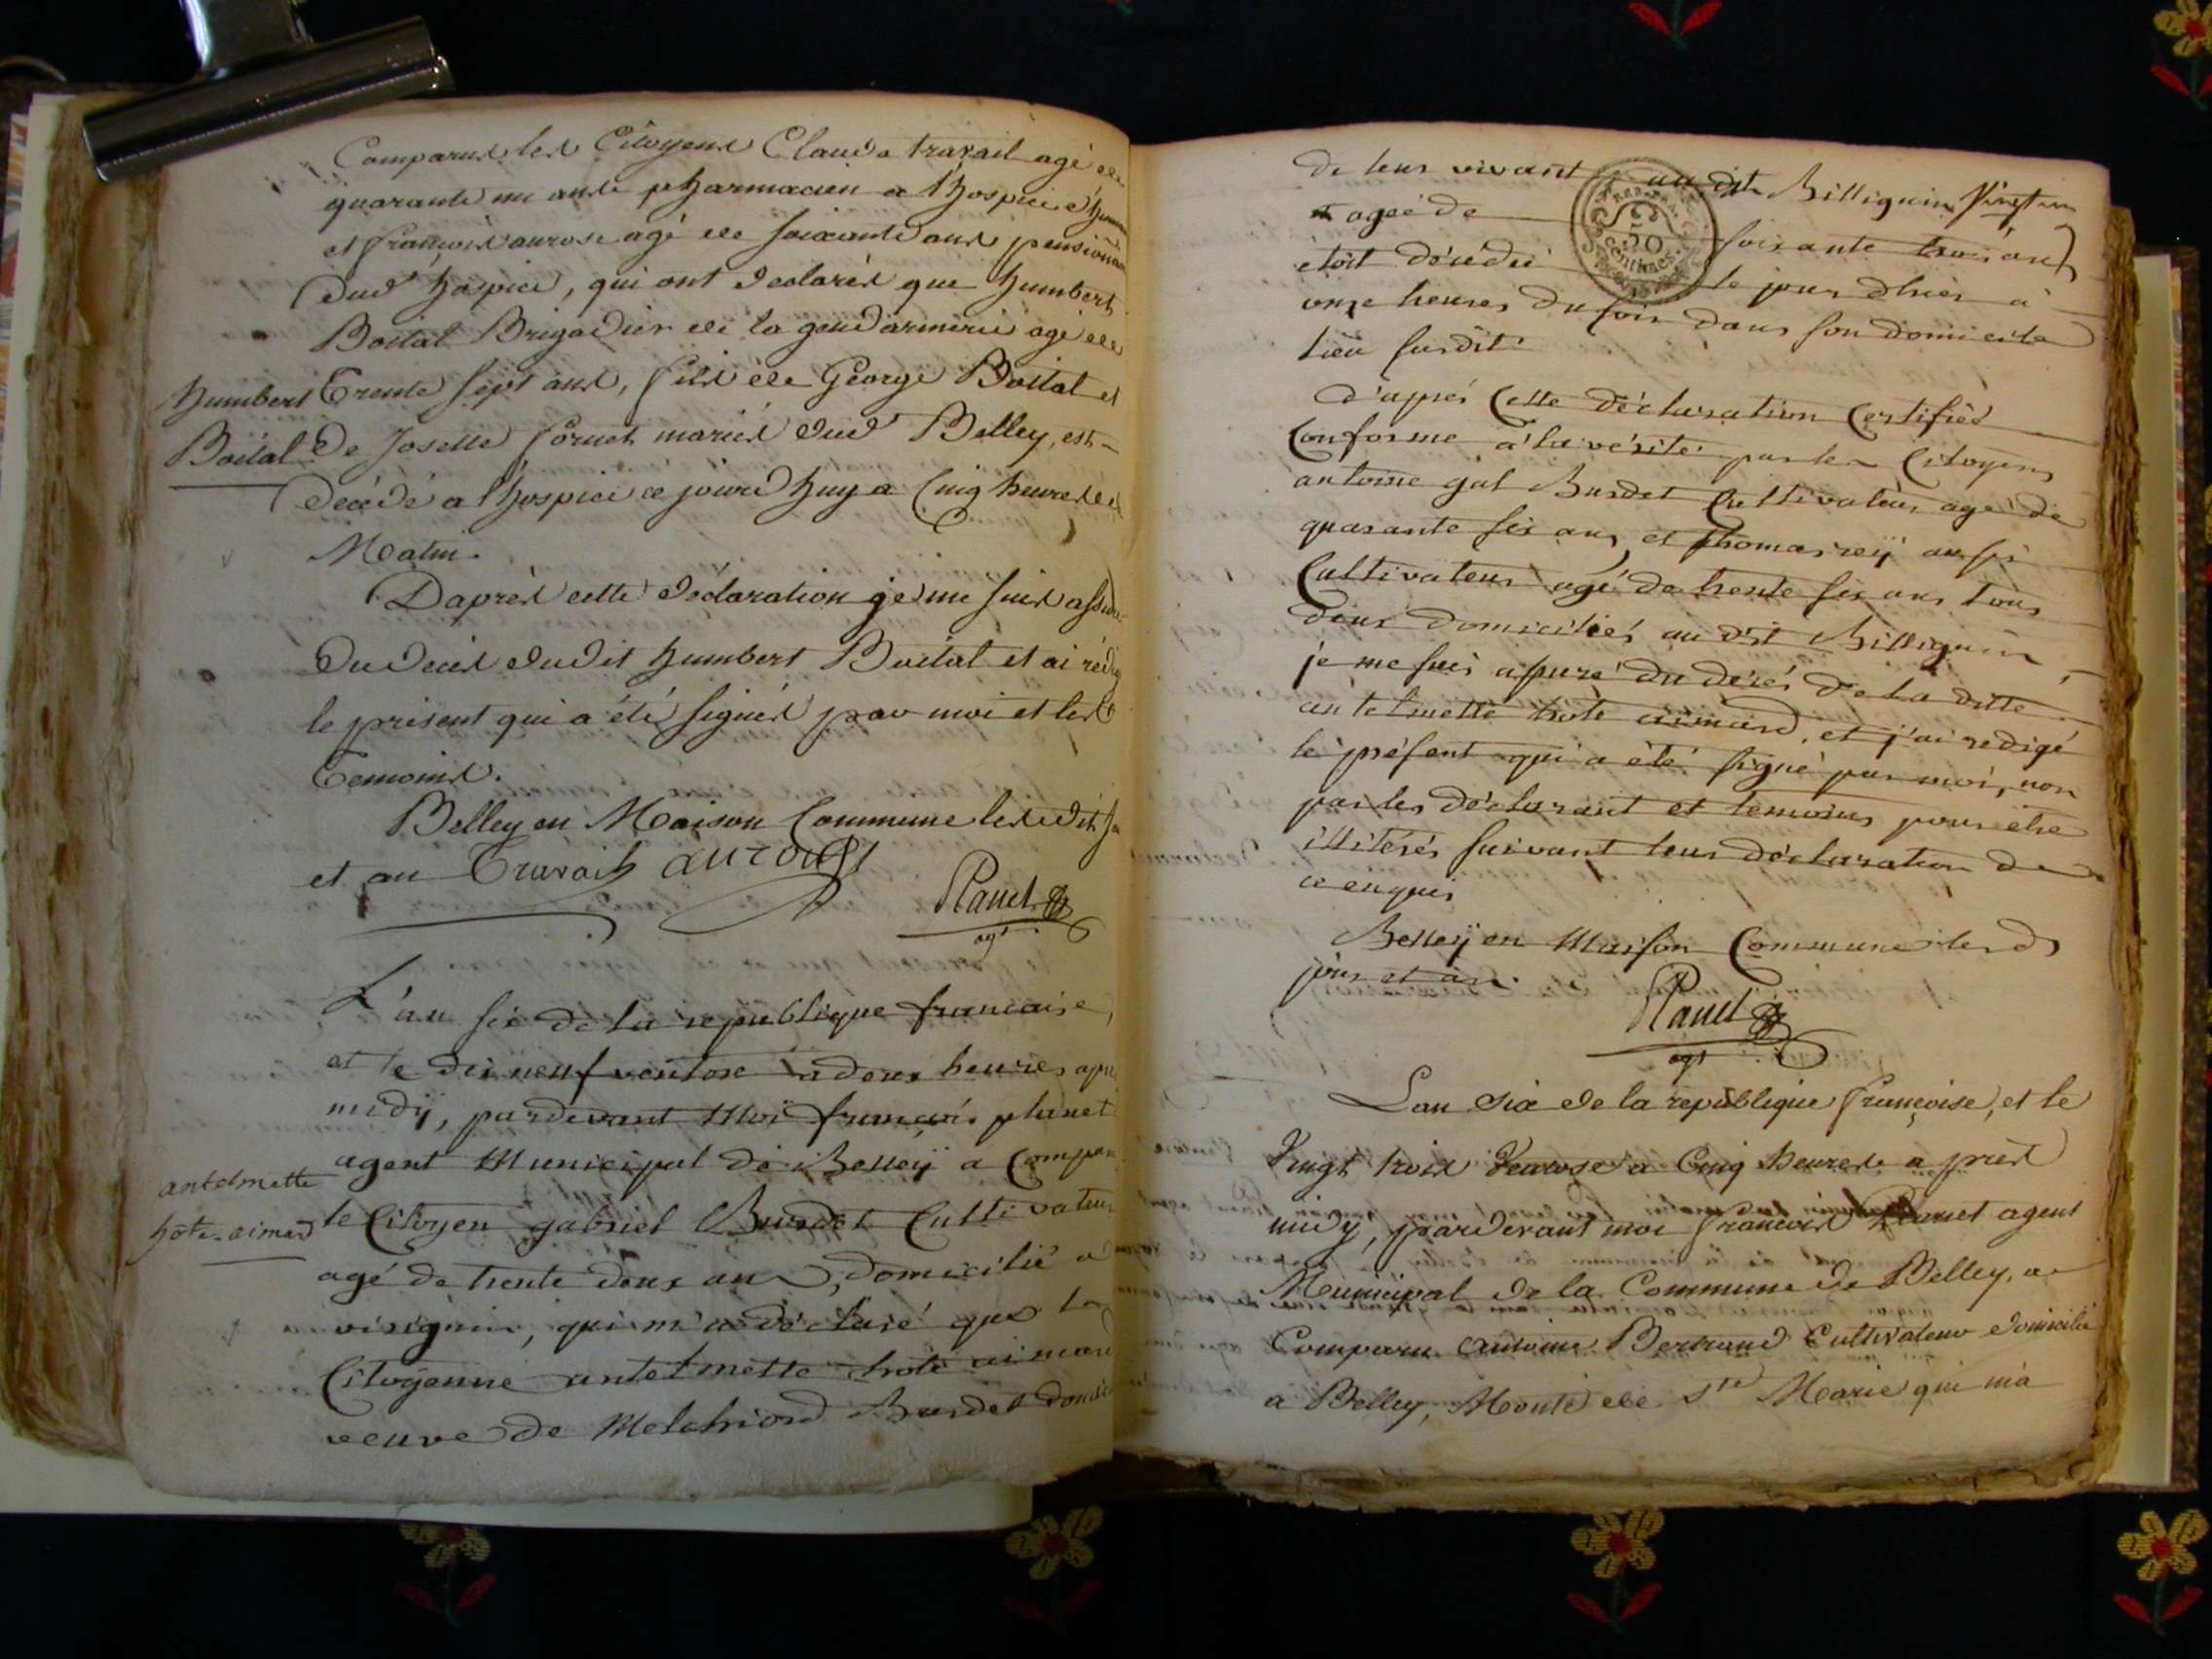 Comparus les Citoyens Claude travail agé de
quarante un ans pharmacien a l'hospice
et françois aurose agé de soixante ans pensionnai
dud hospice, qui ont declarés que humbert
Boital Brigadier de la gendarmerie agé de
humbert
Boital
trente sept ans, fils de George Boital et
de Joselle Cornet mariés dud Belley, est
decédé a l'hospice ce jourd'huy a Cinq heures du
Matin.
D'après cette déclaration je me suis assuré
du decès dudit humbert Boital et ai rédig
le présent qui a été signés par moi et les
temoins.
Belley en Maison Commune lesdit jo
et an Travail aurouse
Planet
agt
L'an six de la republique francaise,
et le dix neuf ventose a deux heures apre
midÿ, pardevant Moi francois planet
agent Municipal de Belleÿ a Compar
antelmette
hôte aimard
le Citoyen gabriel Burdet Cultivateur
agé de trente deux ans, domicilié a
, qui m'a déclaré que la
Citoyenne antelmette hote aimard
veuve de Melchiord Burdet domici
de leur vivant au dit Billignin
agée de soixante trois ans
étoit décédée le jour d'hier à
onze heures du soir dans son domicile
lieu susdit.
d'après Cette déclaration Certifiés
Conforme à la vérité par les Citoyens
antoine gal Burdet Cultivateur agé de
quarante six ans, et thomas reÿ aussi
Cultivateur agé de trente six ans tous
deux domiciliés au dit Billignin,
je me suis assuré du décès de la ditte
antelmette hote aimard, et j'ai redigé
le présent qui a été signé par moi, non
par les déclarant et temoins pour être
illiterés suivant leur déclaration de
ce enquis
Belleÿ en Maison Commune les d
jour et an.
Planet
agt
50
centimes
L'an six de la republique françoise, et le
Vingt trois Ventose a Cinq heures a près
midy, pardevant moi françois Planet agent
Municipal de la Commune de Belley, a
Comparu antoine Bertrand Cultivateur domicilié
a Belley, Monté de Ste Marie qui m'a